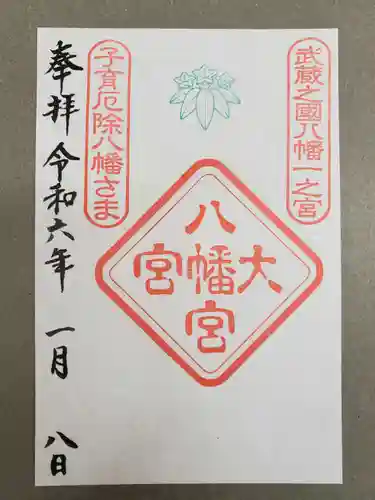 武蔵之國八幡一之宮
大
八幡宮
宮
子育厄除八幡さま
奉拝 令和六年 一月 八日